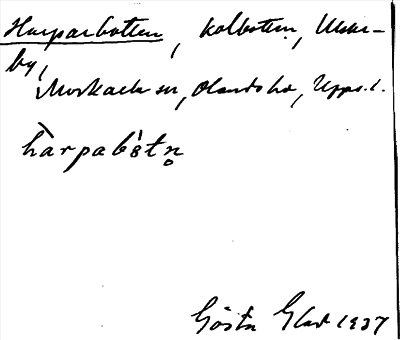 Harparbotten, kolbotten, Ulvar-
by,
Morkarla sn, Olands hd, Upps. l.
hàrpabòtn̥
Gösta Glad 1937